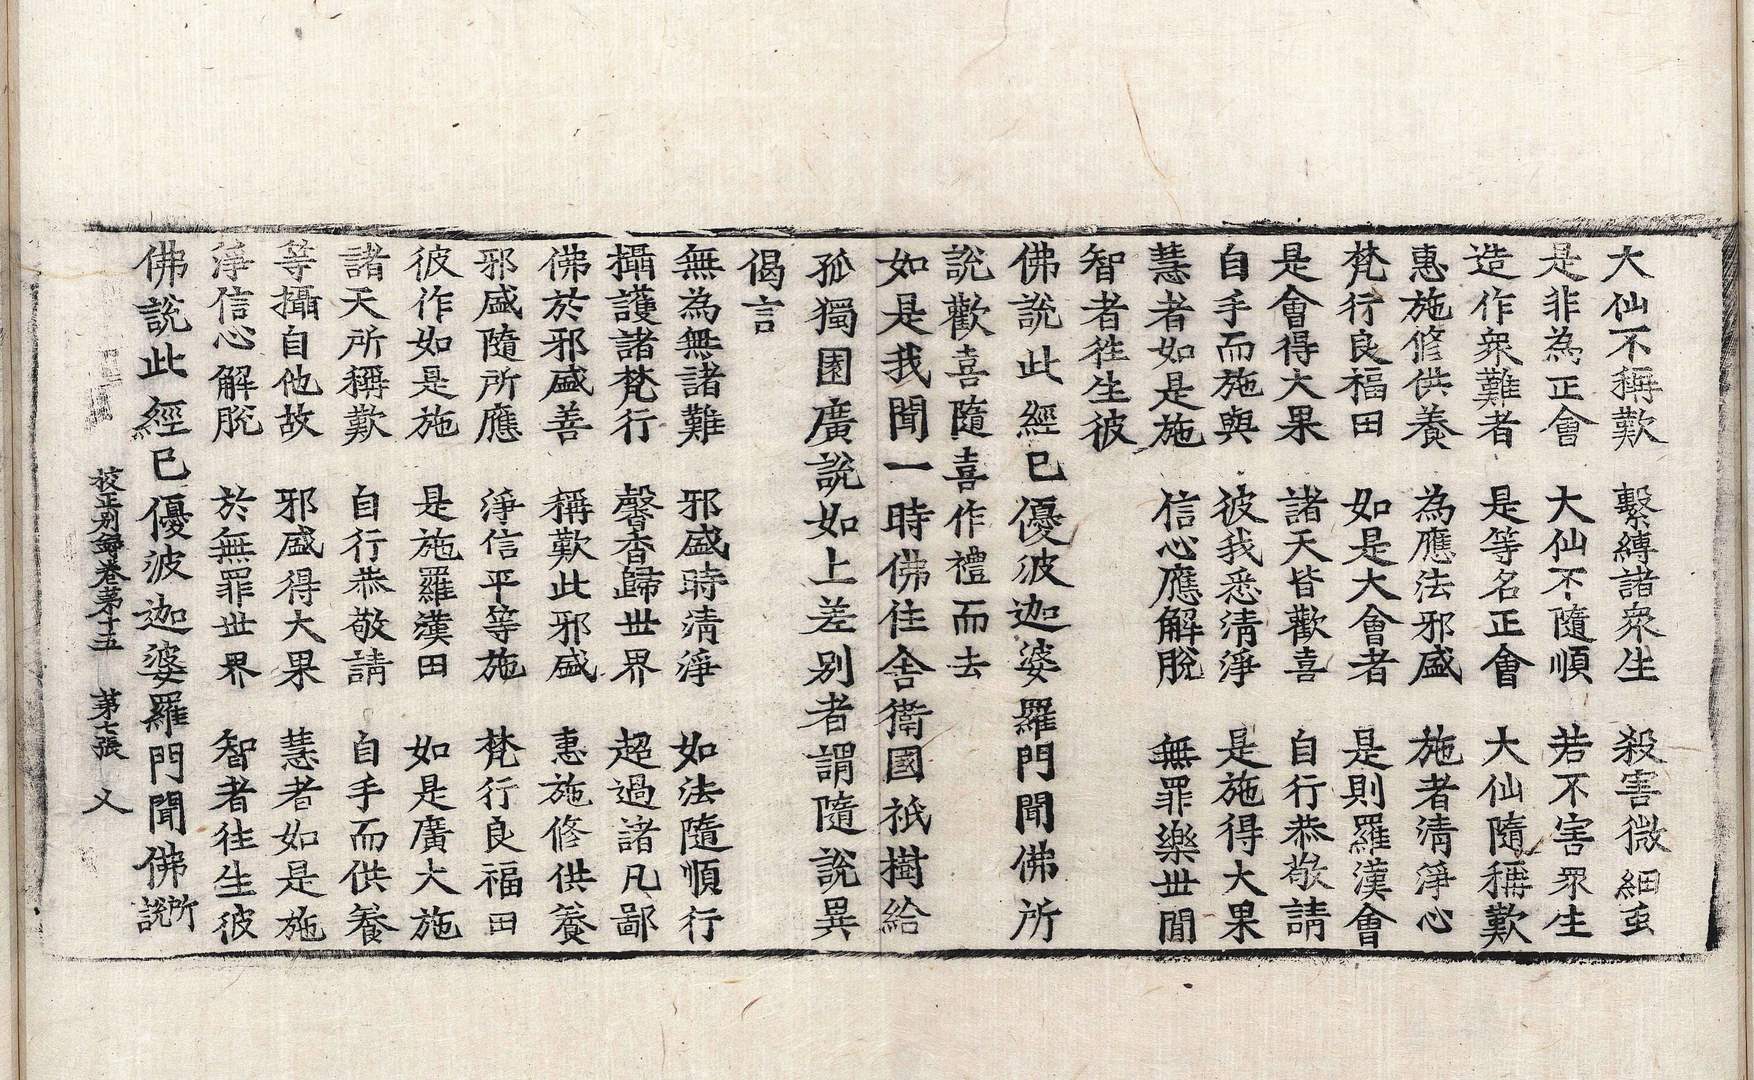 大仙不稱歎　繫縛諸衆生　殺害微細虫
是非為正會　大仙不隨順　若不害眾生
造作衆難者　是等名正會　大仙隨稱歎
惠施修供養　為應法邪盛　施者清淨心
梵行良福田　如是大會者　是則羅漢會
是會得大果　諸天皆歡喜　自行恭敬請
自手而施與　彼我悉清淨　是施得大果
慧者如是施　信心應解脫　無罪樂世間
智者往生彼
佛說此經已優波迦婆羅門聞佛所
說歡喜隨喜作禮而去
如是我聞一時佛住舍衛國祇樹給
孤獨園廣說如上差別者謂隨說異
偈言
無為無諸難　邪盛時清淨　如法隨順行
攝護諸梵行　馨香歸世界　超過諸凡鄙
佛於邪盛善　稱歎此邪盛　惠施修供養
邪盛隨所應　淨信平等施　梵行良福田
彼作如是施　是施羅漢田　如是廣大施
諸天所稱歎　自行恭敬請　自手而供養
等攝自他故　邪盛得大果　慧者如是施
淨信心解脫　於無罪世界　智者往生彼
佛說此經已優波迦婆羅門聞佛所說
校正別錄卷苐十五　苐七張　乂